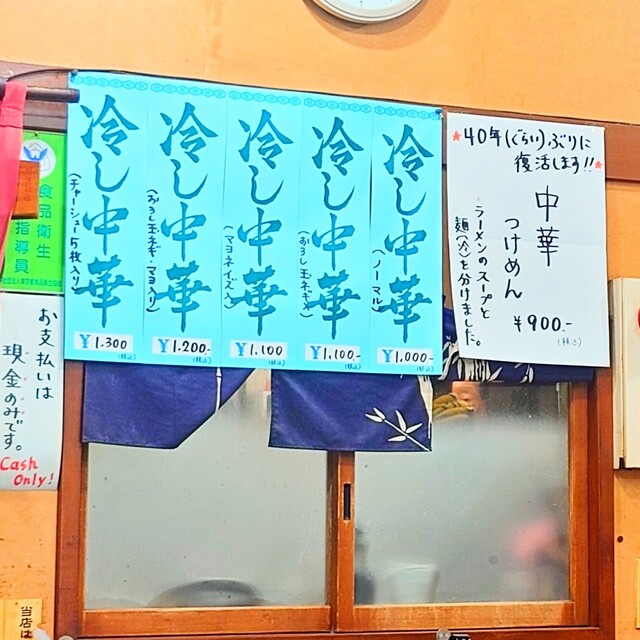 *40年(ぐらい)ぶりに
復活します!!*
中華
つけめん
ラーメンのスープと
麺(冷)を分けました。
¥900.-
(税込)
冷し中華
(ノーマル)
¥1,000-
(税込)
冷し中華
(おろし玉ネギ入)
¥1,100.-
(税込)
冷し中華
(マヨネイズ入)
¥1,100
(税込)
冷し中華
(おろし玉ネギ・マヨ入り)
¥1.200-
(税込)
冷し中華
(チャーシュー5枚入り)
¥1.300
(税込)
食品衛生
指導員
お支払いは
現金のみです。
Cash
Only!
当店は